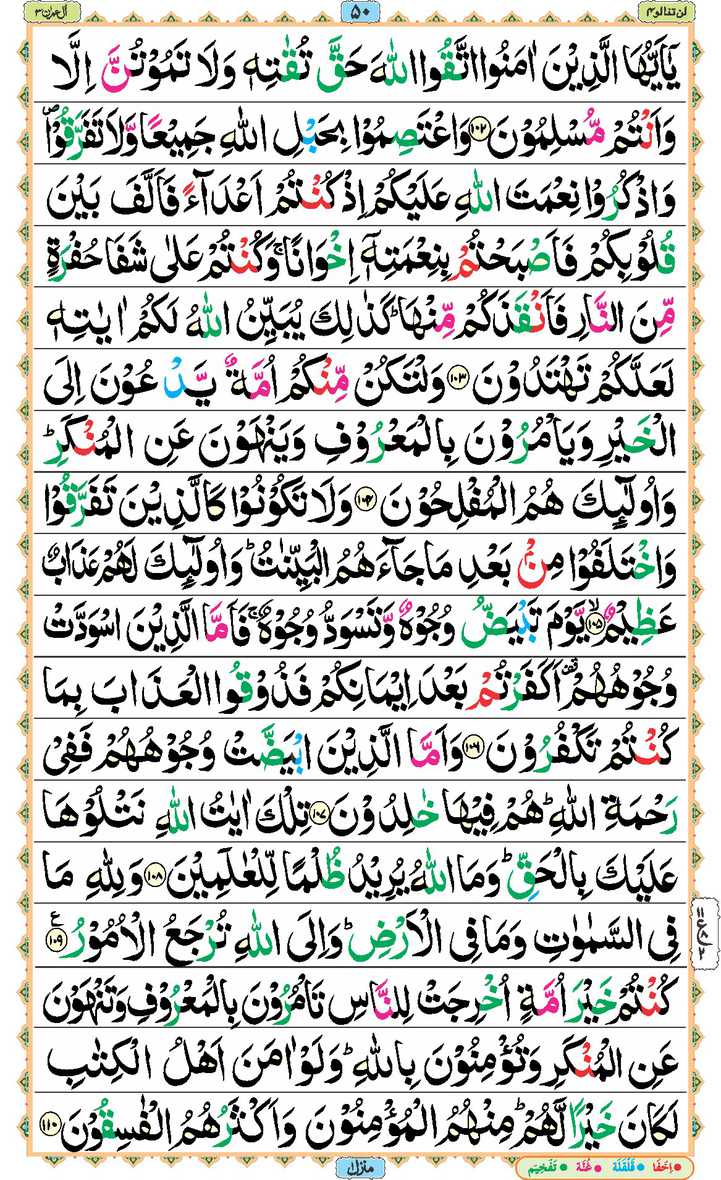 لن تنالوا ٤
۵۰
اٰل عمرٰن ۳
يٰۤاَيُّهَا الَّذِيْنَ اٰمَنُوا اتَّقُوا اللّٰهَ حَقَّ تُقٰتِهٖ وَلَا تَمُوْتُنَّ اِلَّا
وَاَنْتُمْ مُّسْلِمُوْنَ ۝۱۰۲ وَاعْتَصِمُوْا بِحَبْلِ اللّٰهِ جَمِيْعًا وَّلَا تَفَرَّقُوْا ۖ
وَاذْكُرُوْا نِعْمَتَ اللّٰهِ عَلَيْكُمْ اِذْ كُنْتُمْ اَعْدَآءً فَاَلَّفَ بَيْنَ
قُلُوْبِكُمْ فَاَصْبَحْتُمْ بِنِعْمَتِهٖۤ اِخْوَانًا ۚ وَكُنْتُمْ عَلٰى شَفَا حُفْرَةٍ
مِّنَ النَّارِ فَاَنْقَذَكُمْ مِّنْهَا ؕ كَذٰلِكَ يُبَيِّنُ اللّٰهُ لَكُمْ اٰيٰتِهٖ
لَعَلَّكُمْ تَهْتَدُوْنَ ۝۱۰۳ وَلْتَكُنْ مِّنْكُمْ اُمَّةٌ يَّدْعُوْنَ اِلَى
الْخَيْرِ وَيَاْمُرُوْنَ بِالْمَعْرُوْفِ وَيَنْهَوْنَ عَنِ الْمُنْكَرِ ؕ
وَاُولٰٓئِكَ هُمُ الْمُفْلِحُوْنَ ۝۱۰۴ وَلَا تَكُوْنُوْا كَالَّذِيْنَ تَفَرَّقُوْا
وَاخْتَلَفُوْا مِنْۢ بَعْدِ مَا جَآءَهُمُ الْبَيِّنٰتُ ؕ وَاُولٰٓئِكَ لَهُمْ عَذَابٌ
عَظِيْمٌ ۝۱۰۵ ۙ يَّوْمَ تَبْيَضُّ وُجُوْهٌ وَّتَسْوَدُّ وُجُوْهٌ ۚ فَاَمَّا الَّذِيْنَ اسْوَدَّتْ
وُجُوْهُهُمْ ۫ اَكَفَرْتُمْ بَعْدَ اِيْمَانِكُمْ فَذُوْقُوا الْعَذَابَ بِمَا
كُنْتُمْ تَكْفُرُوْنَ ۝۱۰۶ وَاَمَّا الَّذِيْنَ ابْيَضَّتْ وُجُوْهُهُمْ فَفِيْ
رَحْمَةِ اللّٰهِ ؕ هُمْ فِيْهَا خٰلِدُوْنَ ۝۱۰۷ تِلْكَ اٰيٰتُ اللّٰهِ نَتْلُوْهَا
عَلَيْكَ بِالْحَقِّ ؕ وَمَا اللّٰهُ يُرِيْدُ ظُلْمًا لِّلْعٰلَمِيْنَ ۝۱۰۸ وَلِلّٰهِ مَا
فِى السَّمٰوٰتِ وَمَا فِى الْاَرْضِ ؕ وَاِلَى اللّٰهِ تُرْجَعُ الْاُمُوْرُ ۝۱۰۹ ع
كُنْتُمْ خَيْرَ اُمَّةٍ اُخْرِجَتْ لِلنَّاسِ تَاْمُرُوْنَ بِالْمَعْرُوْفِ وَتَنْهَوْنَ
عَنِ الْمُنْكَرِ وَتُؤْمِنُوْنَ بِاللّٰهِ ؕ وَلَوْ اٰمَنَ اَهْلُ الْكِتٰبِ
لَكَانَ خَيْرًا لَّهُمْ ؕ مِنْهُمُ الْمُؤْمِنُوْنَ وَاَكْثَرُهُمُ الْفٰسِقُوْنَ ۝۱۱۰
منزل ۱
اِخْفَا قَلْقَلَة غُنَّة تَفْخِيْم